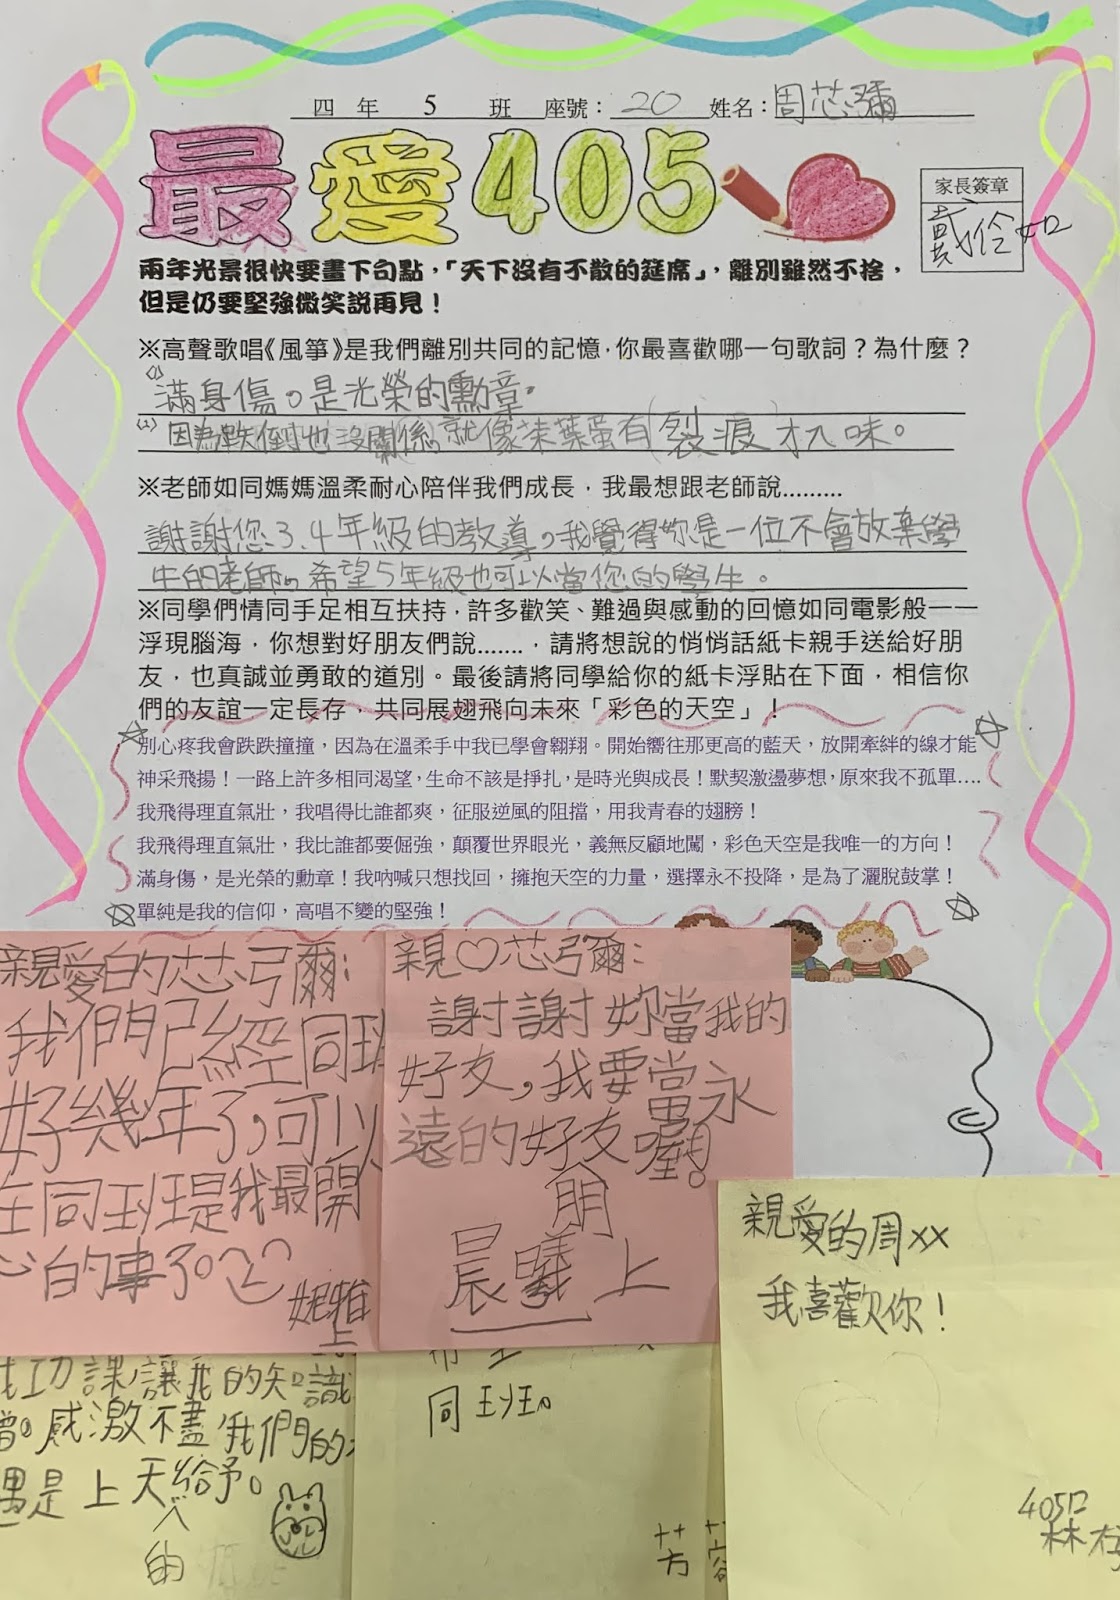 四年 5 班 座號：20 姓名：周芯彌
最愛405
家長簽章
兩年光景很快要畫下句點，「天下沒有不散的筵席」，離別雖然不捨，
但是仍要堅強微笑說再見！
※高聲歌唱《風箏》是我們離別共同的記憶，你最喜歡哪一句歌詞？為什麼？
(1)滿身傷。是光榮的勳章。
(2)因為跌倒也沒關係，就像茶葉蛋有(裂痕)才入味。
※老師如同媽媽溫柔耐心陪伴我們成長，我最想跟老師說.........
謝謝您3.4年級的教導。我覺得妳是一位不會放棄學
生的老師。希望5年級也可以當您的學生。
※同學們情同手足相互扶持，許多歡笑、難過與感動的回憶如同電影般一一
浮現腦海，你想對好朋友們說.......，請將想說的悄悄話紙卡親手送給好朋
友，也真誠並勇敢的道別。最後請將同學給你的紙卡浮貼在下面，相信你
們的友誼一定長存，共同展翅飛向未來「彩色的天空」！
別心疼我會跌跌撞撞，因為在溫柔手中我已學會翱翔。開始嚮往那更高的藍天，放開牽絆的線才能
神采飛揚！一路上許多相同渴望，生命不該是掙扎，是時光與成長！默契激盪夢想，原來我不孤單....
我飛得理直氣壯，我唱得比誰都爽，征服逆風的阻擋，用我青春的翅膀！
我飛得理直氣壯，我比誰都要倔強，顛覆世界眼光，義無反顧地闖，彩色天空是我唯一的方向！
滿身傷，是光榮的勳章！我吶喊只想找回，擁抱天空的力量，選擇永不投降，是為了灑脫鼓掌！
單純是我的信仰，高唱不變的堅強！
親愛的芯彌：
我們已經同班
好幾年了，可以
在同班是我最開
心的事了。
妮雅
上
親♡芯彌：
謝謝妳當我的
好友，我要當永
遠的好友喔！
朋
晨曦上
親愛的周xx
我喜歡你！
405
林
功課讓我的知識
增。感激不盡我們的
遇是上天給予。
的
同班。
芳容